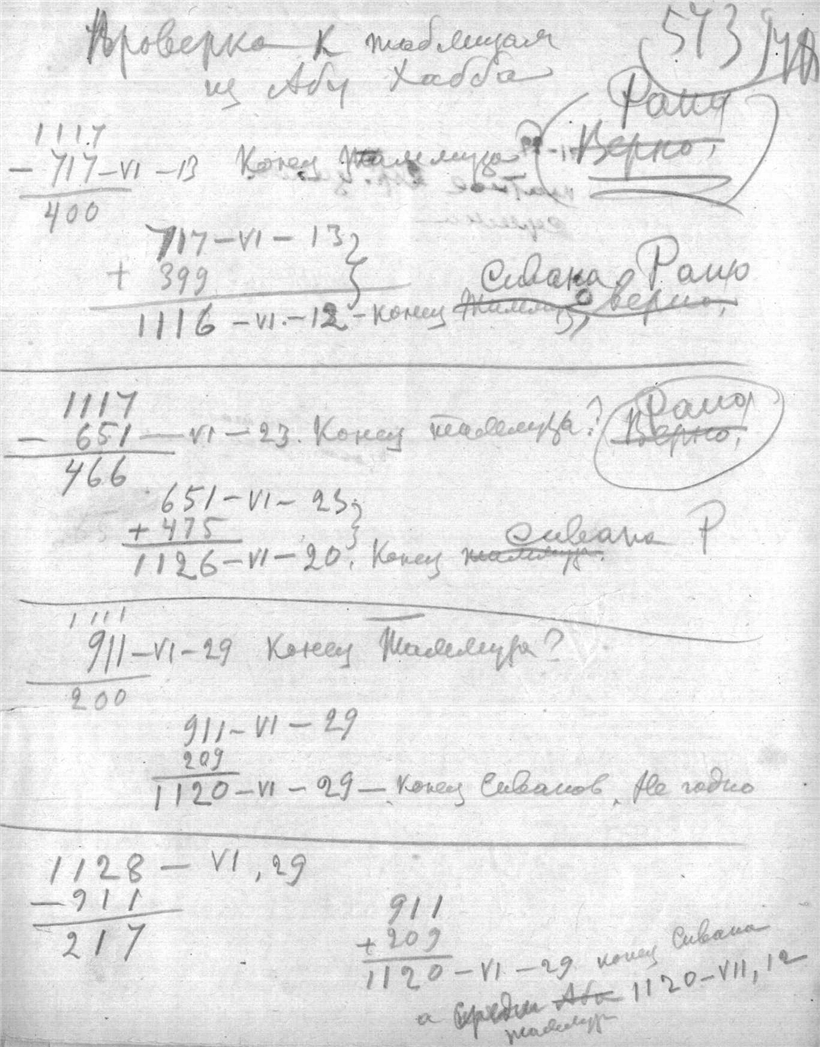 Проверка к таблицам 573
из Абу Хабба
Рано
Верно,
1117
− 717–VI–13 Конец Таммуза
400
717–VI–13
+ 399
Сивана Рано
1116–VI–12–Конец Таммуза, верно,
1117
− 651–VI–23. Конец таммуза? Рано
Верно,
466
651–VI–23
+ 475
Сивана Р
1126–VI–20, Конец таммуза.
1111
911–VI–29 Конец Таммуза?
200
911–VI–29
209
1120–VI–29–Конец Сиванов. Не годно
1128 – VI, 29
−911
217
911
+ 209
1120–VI–29 конец Сивана
а средн Аба 1120–VII, 12
таммуз